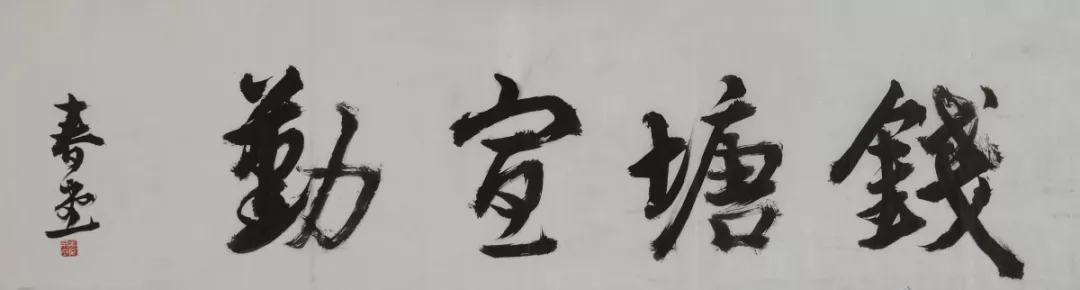 錢塘宣勤
春